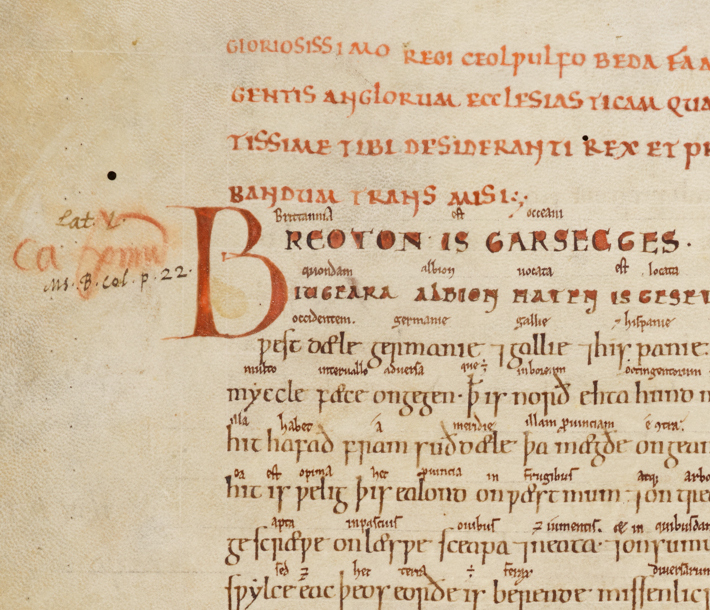 GLORIOSISSIMO REGI CEOLǷULFO BEDA FA
GENTIS ANGLORUM ECCLESIASTICAM QUA
TISSIME TIBI DESIDERANTI REX ET PR
BANDUM TRANSMISI:,
Lat. 1.
Brittannia est oceani
BREOTON IS GARSECGES·
Ca
Ms. B. Col. p. 22.
quondam albion uocata est locata
IUGEARA ALBION HATEN IS GESE
occidentem. germanie gallie ⁊ hispanie
ƿest dæle germanie ⁊ gallie ⁊ hispanie
multo interuallo aduersa que÷ inboream octingentorum
myccle fæce ongegen· ꝥ is norð ehta hund m
illa habet a meridie illam ꝓuinciam
hit hafað fram suðdæle þa mægðe ongean
ea est opima hec ꝓuincia in frugibus atq; arbo
hit is ƿelig þis ealond on ƿæstmum ⁊ on treo
apta inpascuis ouibus ⁊ iumentis. & in quibusdam
gescræpe on læsƿe sceapa ⁊ neata· ⁊ on sumu
sed ⁊ hec terra ÷ ferax diuersarum
sƿylce eac þeos eorðe is berende missenlic